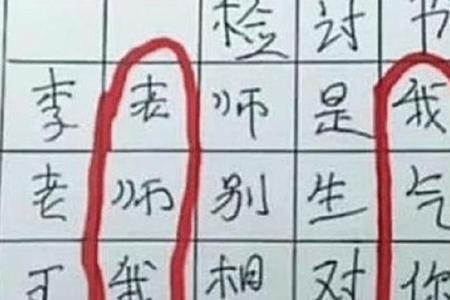 检讨书
李老师是我
老师别生气
可我相对你